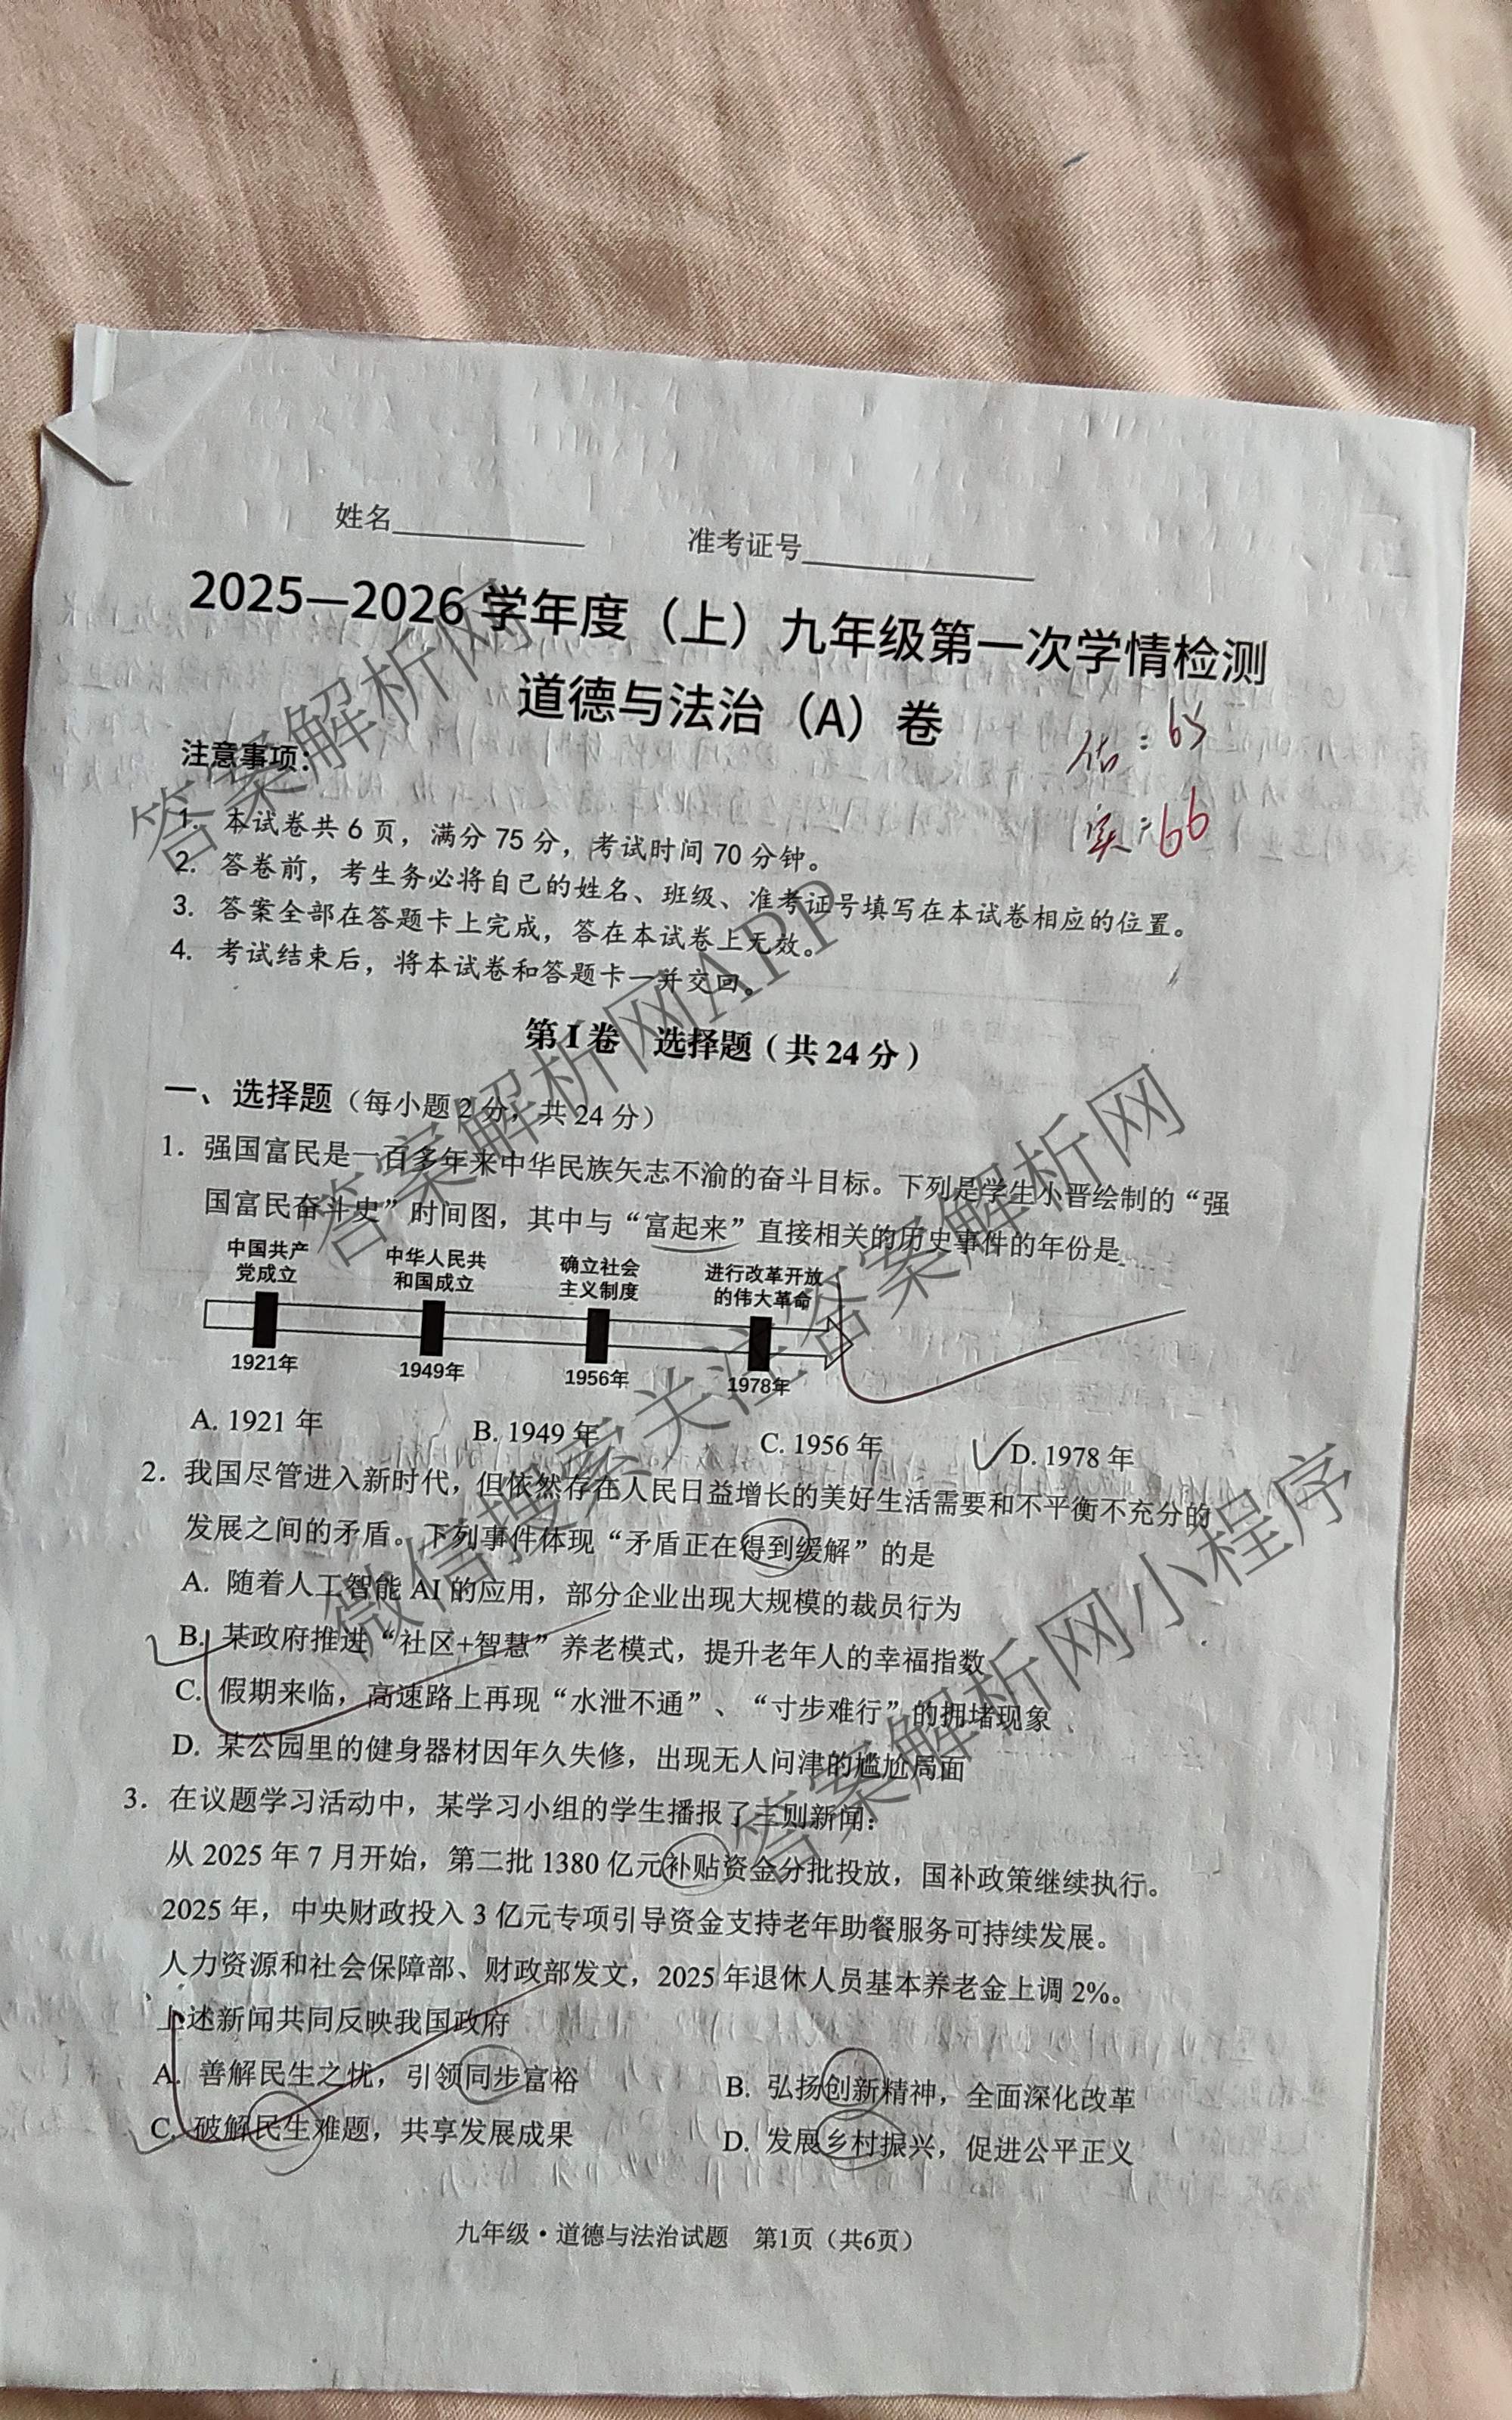 姓名________ 准考证号________
2025—2026 学年度（上）九年级第一次学情检测
道德与法治（A）卷
估：65
实：66
注意事项：
1. 本试卷共 6 页，满分 75 分，考试时间 70 分钟。
2. 答卷前，考生务必将自己的姓名、班级、准考证号填写在本试卷相应的位置。
3. 答案全部在答题卡上完成，答在本试卷上无效。
4. 考试结束后，将本试卷和答题卡一并交回。
第 I 卷 选择题（共 24 分）
一、选择题（每小题 2 分，共 24 分）
1. 强国富民是一百多年来中华民族矢志不渝的奋斗目标。下列是学生小晋绘制的“强
国富民奋斗史”时间图，其中与“富起来”直接相关的历史事件的年份是
中国共产 中华人民共 确立社会 进行改革开放
党成立 和国成立 主义制度 的伟大革命
1921年 1949年 1956年 1978年
A. 1921 年 B. 1949 年 C. 1956 年 D. 1978 年
2. 我国尽管进入新时代，但依然存在人民日益增长的美好生活需要和不平衡不充分的
发展之间的矛盾。下列事件体现“矛盾正在得到缓解”的是
A. 随着人工智能 AI 的应用，部分企业出现大规模的裁员行为
B. 某政府推进“社区+智慧”养老模式，提升老年人的幸福指数
C. 假期来临，高速路上再现“水泄不通”、“寸步难行”的拥堵现象
D. 某公园里的健身器材因年久失修，出现无人问津的尴尬局面
3. 在议题学习活动中，某学习小组的学生播报了三则新闻：
从 2025 年 7 月开始，第二批 1380 亿元补贴资金分批投放，国补政策继续执行。
2025 年，中央财政投入 3 亿元专项引导资金支持老年助餐服务可持续发展。
人力资源和社会保障部、财政部发文，2025 年退休人员基本养老金上调 2%。
上述新闻共同反映我国政府
A. 善解民生之忧，引领同步富裕 B. 弘扬创新精神，全面深化改革
C. 破解民生难题，共享发展成果 D. 发展乡村振兴，促进公平正义
九年级·道德与法治试题 第1页（共6页）
答案解析网
答案解析网APP
微信搜索关注答案解析网
答案解析网小程序